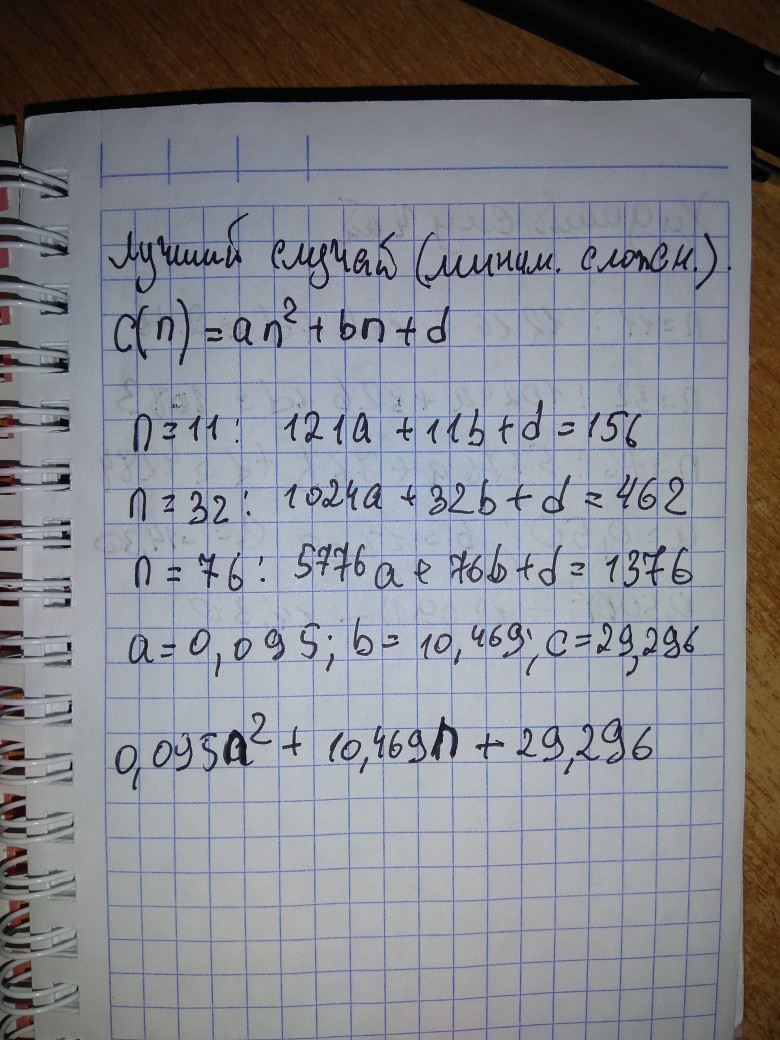 Лучший случай (миним. сложн.).
C(n) = an² + bn + d
n = 11: 121a + 11b + d = 156
n = 32: 1024a + 32b + d = 462
n = 76: 5776a + 76b + d = 1376
a = 0,095; b = 10,469; c = 29,296
0,095n² + 10,469n + 29,296